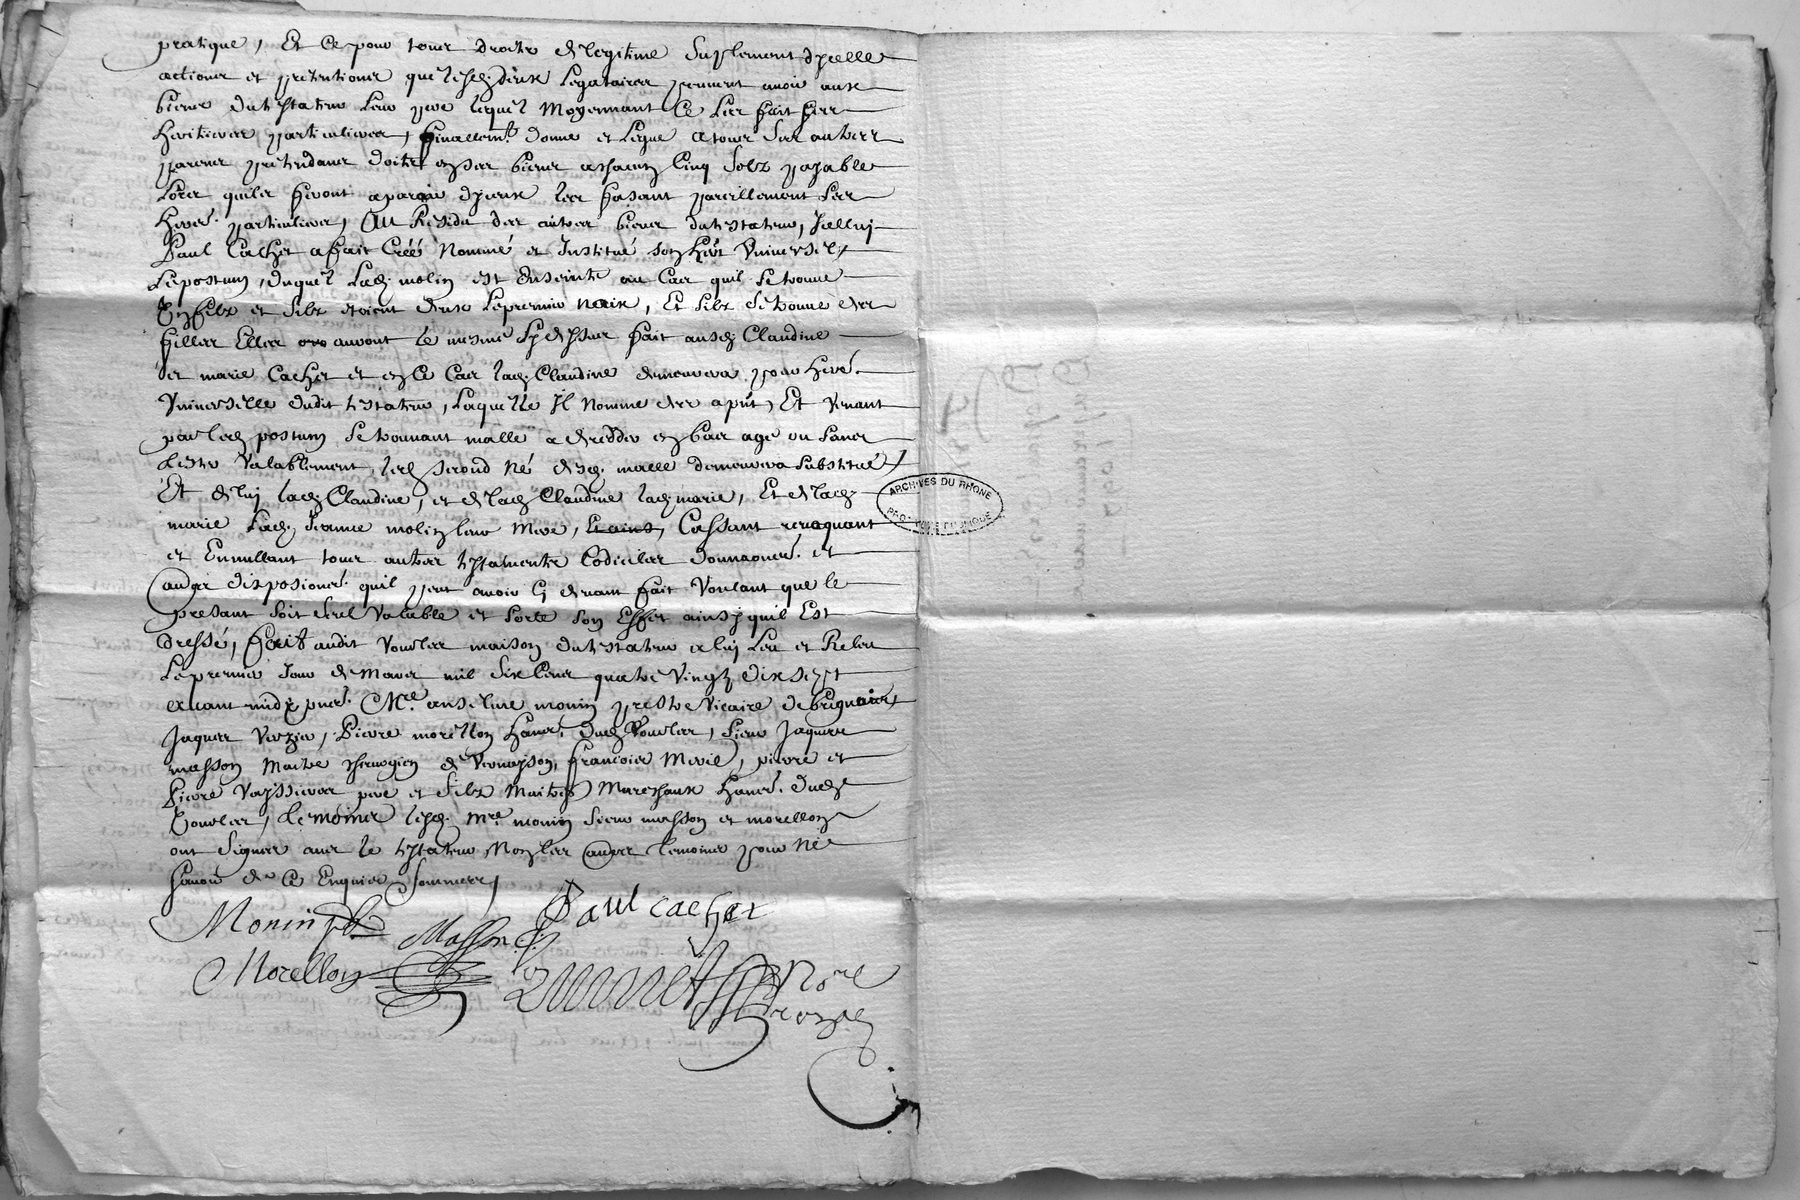 pratique, Et ce pour tous droits de legitime suplement dycelle
actions et pretentions que lesd. deux legataires peuvent avoir aux
biens du testateur leur pere lequel moyennant ce les fait ses
heritieres particulieres, finallemt. donne et legue a tous ses autres
parens pretendans doits en ses biens a chacun cinq solz payable
lors quils feront aparoir dyceux les fasant pareillement ses
hers. particuliers, Au Residu des autres biens du testateur, Icelluy
Paul Cachet a fait Créé Nommé et Institué son hert Universel,
Le postum, duquel lad. molin est Enseinte au cas quil se trouve
un filz et silz etoient deux le premier naix, Et silz se trouve des
filles Elles auront le mesme que dessus fait ausd. Claudine
et marie Cachet et en ce cas lad. Claudine demeurera pour heré.
Universelle dudit testateur, laquelle Il nomme des a pnt, Et venant
par led. postum se trouvant malle a decedder en bas age ou sans
tester valablement, led. second né desd. malle demeurera substitué,
Et de luy lad. Claudine, et de lad. Claudine lad. marie, Et de lad.
marie lad. Jeanne molin leur mere, Cassant revoquant
et Ennullant tous autres testaments Codiciles donnaons. et
autres disposions. quil peut avoir cy devant fait Voulant que le
presant soit seul valable et sorte son Effet ainsy quil Est
dressé, fait audit Vourles maison du testateur a luy Leu et Releu
Le premier Jour de Mars mil six cens quatre vingt dix sept
avant midy pns. Mre. anselme monin prestre vicaire de brignais
Jaques Verzier, Pierre morellon hans. dud. Vourles, sieur Jaques
masson Maitre chirurgien de Vernaison, francois Merle, pierre et
Pierre Vaissieres pere et filz Maitres Mareschaux hans. dud.
Vourles, temoins lesd. Mre. monin sieur masson et morellon
ont signes avec le testateur Non les autres temoins pour ne
scavoir de ce Enquis et sommes,
Paul cachet
Monin pbr
Masson
Morellon
Nore
Royal
ARCHIVES DU RHONE